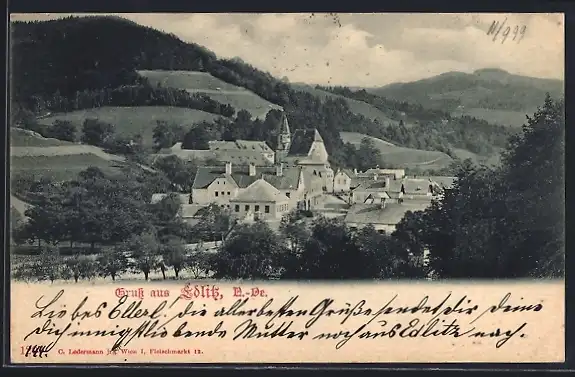 11/9 99
Gruß aus Edlitz, N.-Oe.
Liebes Ellerl. die allerbesten Grüße sendet Dir Deine
Dich innigst liebende Mutter noch aus Edlitz nach.
C. Ledermann jr., Wien I, Fleischmarkt 12.